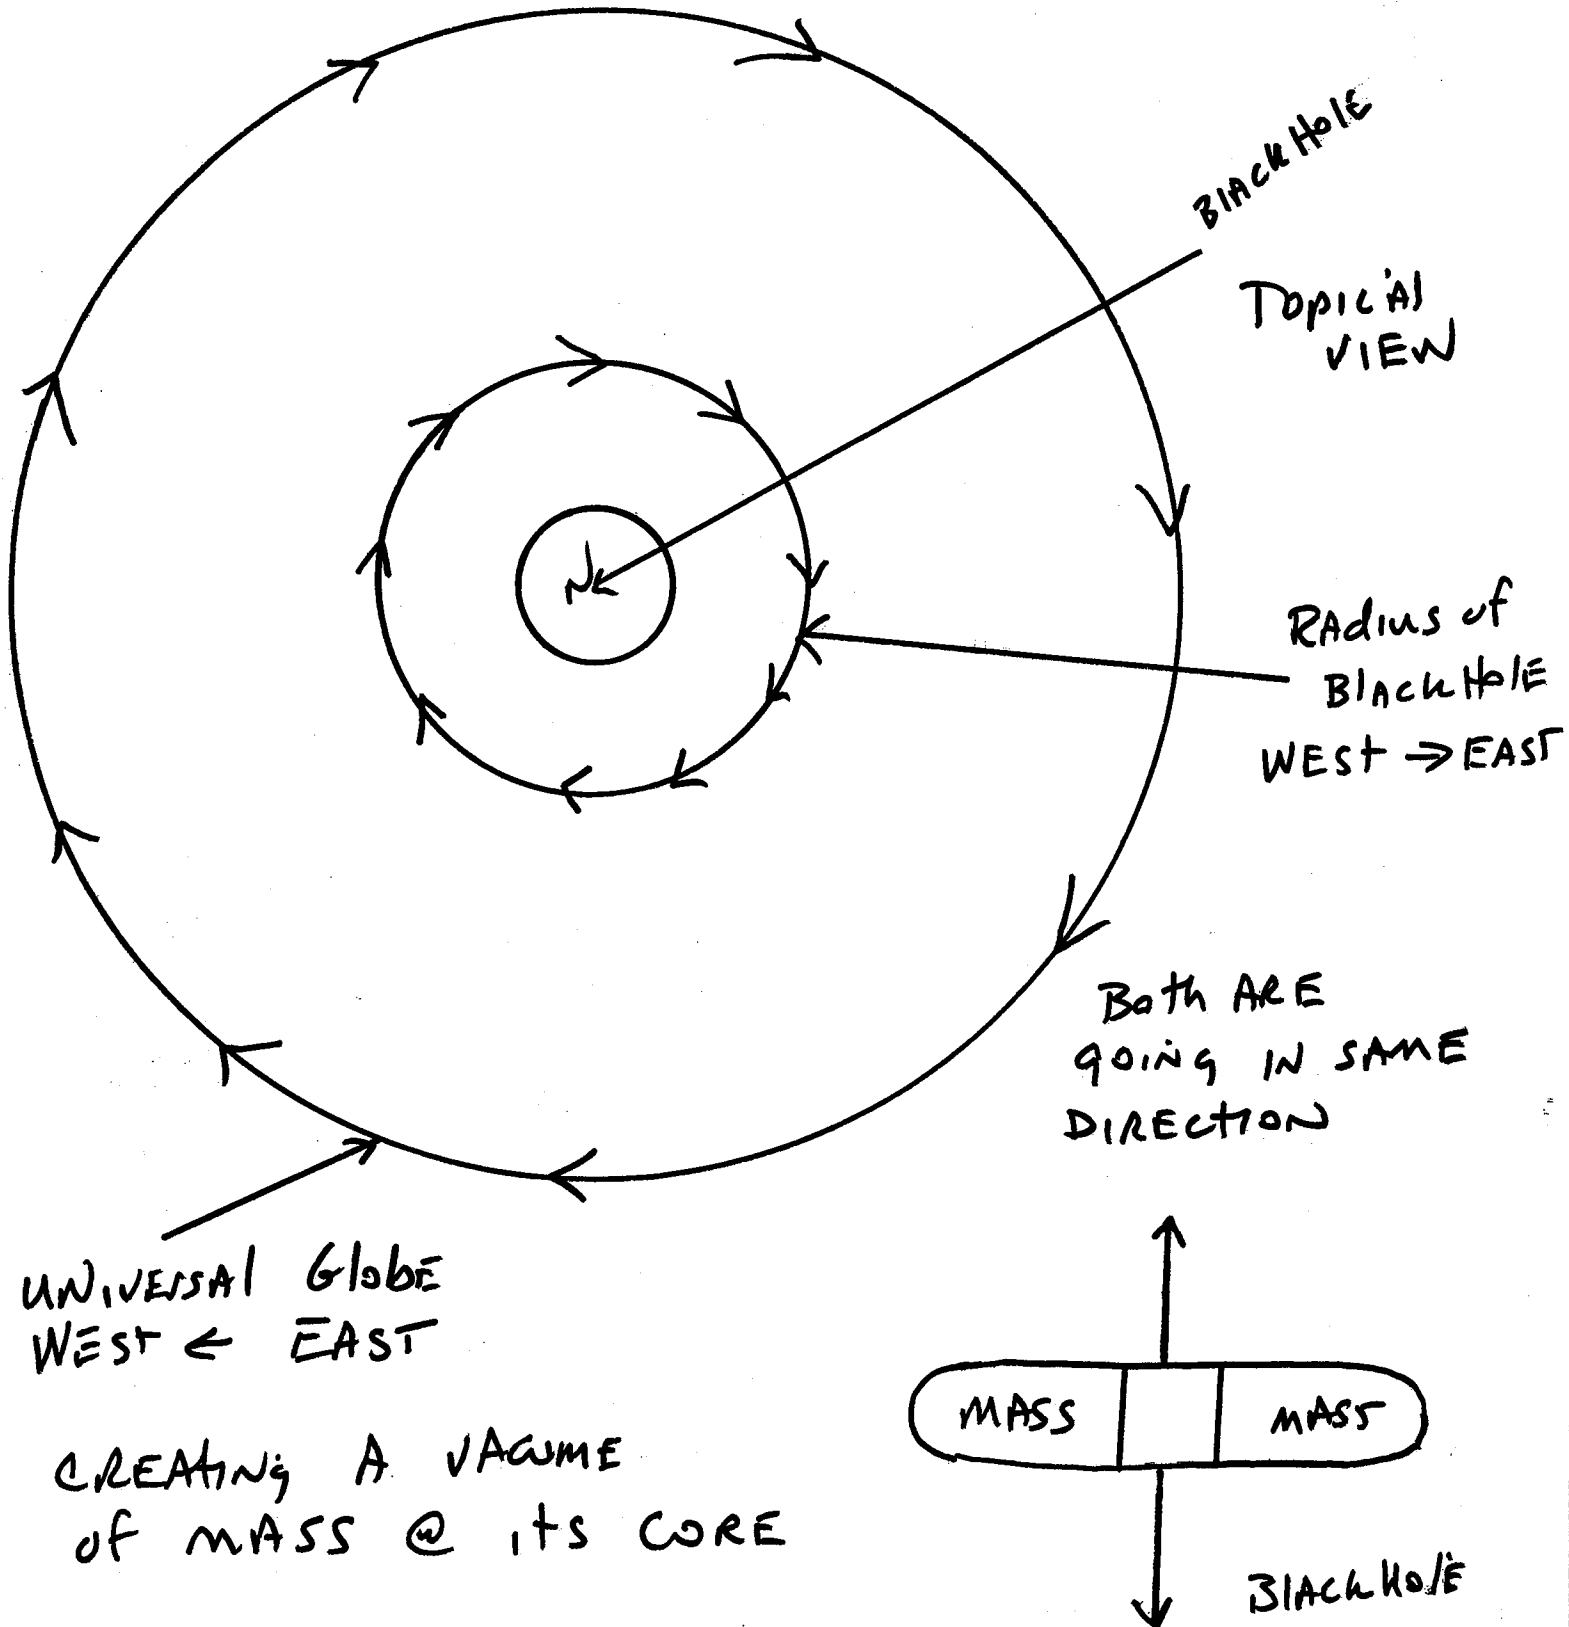 BlACKHolE
TopicAl
VIEW
N
RAdius of
BlACKHolE
WESt → EAST
Both ARE
going IN SAME
DIRECtION
UNIVERSAl GlobE
WESt ← EAST
CREAting A VACUME
of MASS @ its CORE
MASS MASS
BlACKHolE